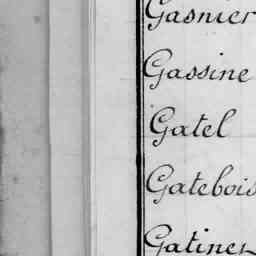 Gasnier
Gassine
Gatel
Gatebois
Gatines